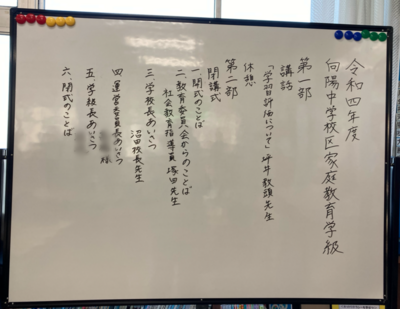 令和四年度
向陽中学校区家庭教育学級
第一部
講話
「学習評価について」坪井教頭先生
休憩
第二部
閉講式
一.開式のことば
二.教育委員会からのことば
社会教育指導員 塚田先生
三.学校長あいさつ
沼田校長先生
四.運営委員長あいさつ
様
五.学級長あいさつ
六.閉式のことば